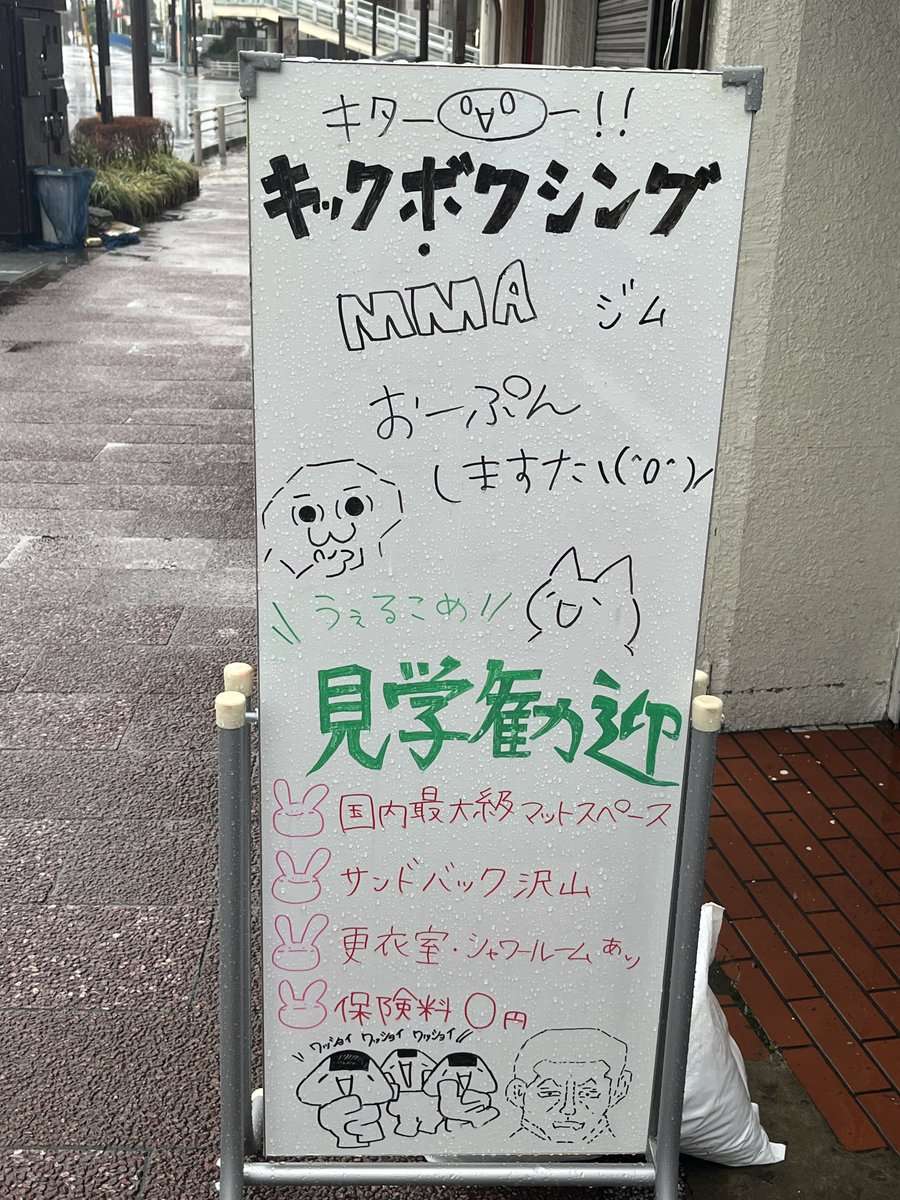 キター(゚∀゚)ー!!
キックボクシング
・
MMA ジム
おーぷん
しますた\(^o^)/
\\うぇるこめ//
見学勧迎
国内最大級マットスペース
サンドバック沢山
更衣室・シャワールームあり
保険料0円
ワッショイ ワッショイ ワッショイ//